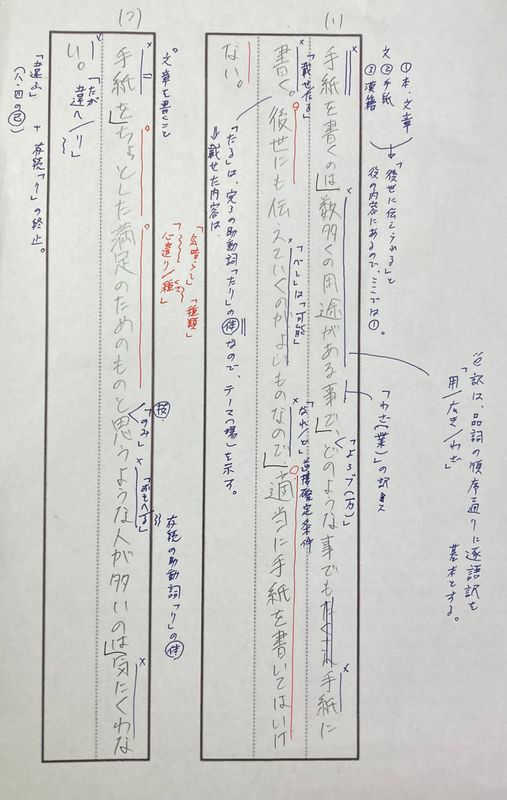 ◎訳は、品詞の順序通りに逐語訳を
基本とする。
「用/広き/わざ」
「わざ(業)」の訳
「よろづ(万)」
①本、文章
文②手紙
③漢籍
「後世に伝こうめる」と
後の内容にあるので、ここでは①。
(1)
手紙を書くのは数多くの用途がある事で、どのような事でもたくさん手紙に
書く。後世にも伝えていくのがよいものなので、適当に手紙を書いてはいけ
ない。
「載せたる」
「べし」は「可能」
「なれ/ど」逆接確定条件
「たる」は、完了の助動詞「たり」の㊍なので、テーマ「場」を示す。
⇒載せた内容は、
「気晴らし」
「心遣り/種」
「種類」
「のみ」
「おもへる」
存続の助動詞「り」の
(2)
。文章を書くこと
手紙をちょっとした満足のためのものと思うような人が多いのは気にくわな
い。
「たが
違へ/り」
「違ふ」+存続「り」の終止。
(八・四の㊁)